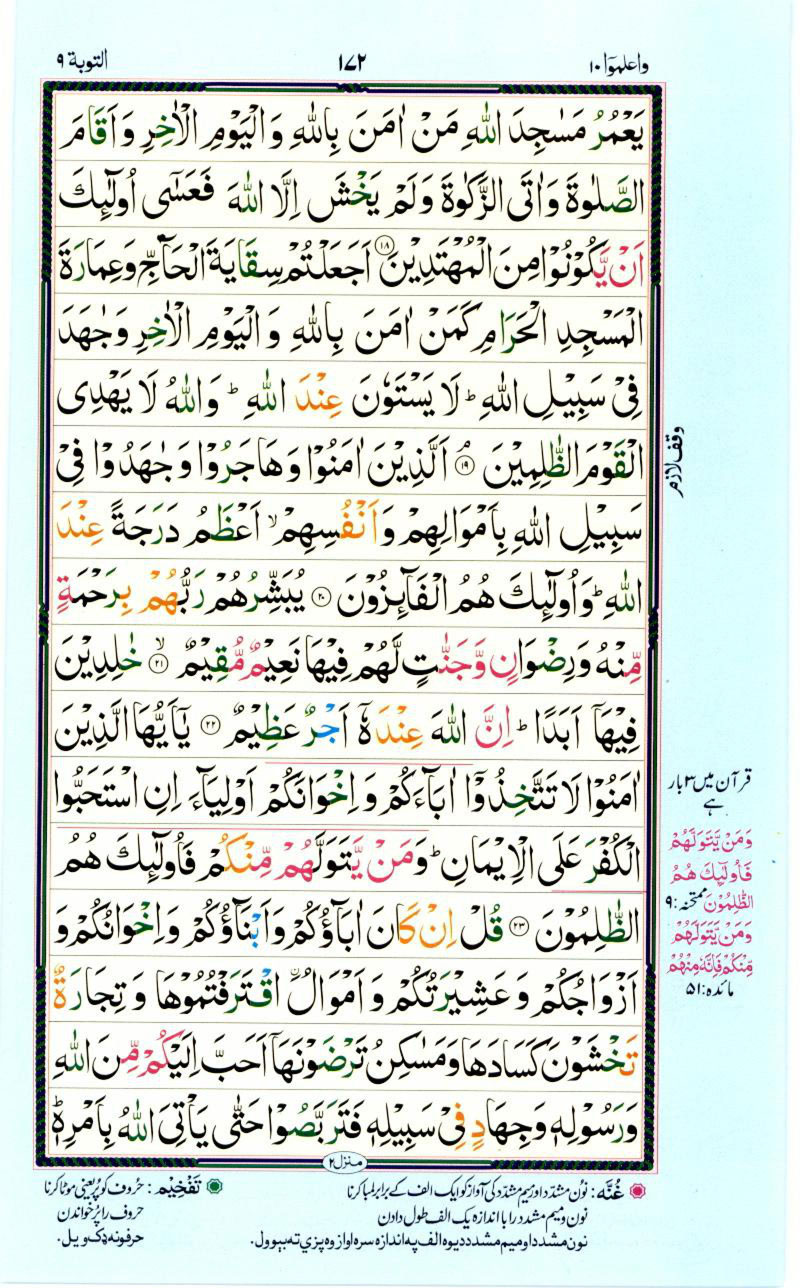 واعلموٓا ١٠
١٧٢
التوبة ٩
يَعْمُرُ مَسٰجِدَ اللّٰهِ مَنْ اٰمَنَ بِاللّٰهِ وَالْيَوْمِ الْاٰخِرِ وَاَقَامَ
الصَّلٰوةَ وَاٰتَى الزَّكٰوةَ وَلَمْ يَخْشَ اِلَّا اللّٰهَ فَعَسٰٓى اُولٰٓئِكَ
اَنْ يَّكُوْنُوْا مِنَ الْمُهْتَدِيْنَ ١٨ اَجَعَلْتُمْ سِقَايَةَ الْحَآجِّ وَعِمَارَةَ
الْمَسْجِدِ الْحَرَامِ كَمَنْ اٰمَنَ بِاللّٰهِ وَالْيَوْمِ الْاٰخِرِ وَجٰهَدَ
فِيْ سَبِيْلِ اللّٰهِ ؕ لَا يَسْتَوٗنَ عِنْدَ اللّٰهِ ؕ وَاللّٰهُ لَا يَهْدِى
الْقَوْمَ الظّٰلِمِيْنَ ۘ ١٩ اَلَّذِيْنَ اٰمَنُوْا وَهَاجَرُوْا وَجٰهَدُوْا فِيْ
وقف لازم
سَبِيْلِ اللّٰهِ بِاَمْوَالِهِمْ وَاَنْفُسِهِمْ ۙ اَعْظَمُ دَرَجَةً عِنْدَ
اللّٰهِ ؕ وَاُولٰٓئِكَ هُمُ الْفَآئِزُوْنَ ٢٠ يُبَشِّرُهُمْ رَبُّهُمْ بِرَحْمَةٍ
مِّنْهُ وَرِضْوَانٍ وَّجَنّٰتٍ لَّهُمْ فِيْهَا نَعِيْمٌ مُّقِيْمٌ ۙ ٢١ خٰلِدِيْنَ
فِيْهَآ اَبَدًا ؕ اِنَّ اللّٰهَ عِنْدَهٗٓ اَجْرٌ عَظِيْمٌ ٢٢ يٰٓاَيُّهَا الَّذِيْنَ
اٰمَنُوْا لَا تَتَّخِذُوْٓا اٰبَآءَكُمْ وَاِخْوَانَكُمْ اَوْلِيَآءَ اِنِ اسْتَحَبُّوا
الْكُفْرَ عَلَى الْاِيْمَانِ ؕ وَمَنْ يَّتَوَلَّهُمْ مِّنْكُمْ فَاُولٰٓئِكَ هُمُ
الظّٰلِمُوْنَ ٢٣ قُلْ اِنْ كَانَ اٰبَآؤُكُمْ وَاَبْنَآؤُكُمْ وَاِخْوَانُكُمْ وَ
اَزْوَاجُكُمْ وَعَشِيْرَتُكُمْ وَاَمْوَالُ ۨ اقْتَرَفْتُمُوْهَا وَتِجَارَةٌ
تَخْشَوْنَ كَسَادَهَا وَمَسٰكِنُ تَرْضَوْنَهَآ اَحَبَّ اِلَيْكُمْ مِّنَ اللّٰهِ
وَرَسُوْلِهٖ وَجِهَادٍ فِيْ سَبِيْلِهٖ فَتَرَبَّصُوْا حَتّٰى يَاْتِيَ اللّٰهُ بِاَمْرِهٖ ؕ
قرآن میں ۲ بار
ہے
وَمَنْ يَّتَوَلَّهُمْ
فَاُولٰٓئِكَ هُمُ
الظّٰلِمُوْنَ ممتحنہ: ۹
وَمَنْ يَّتَوَلَّهُمْ
مِّنْكُمْ فَاِنَّهٗ مِنْهُمْ
مائدہ: ۵۱
منزل ٢
غُنَّه: نون مشدّد اور میم مشدّد کی آواز کو ایک الف کے برابر لمبا کرنا
نون و میم مشدد را با اندازه یک الف طول دادن
نون مشدد او میم مشدد د یوه الف په اندازه سره اواز وه پزې ته بیوول.
تَفْخِيْم: حروف کو پُر یعنی موٹا کرنا
حروف را پُر خواندن
حرفونه ډک ویل.